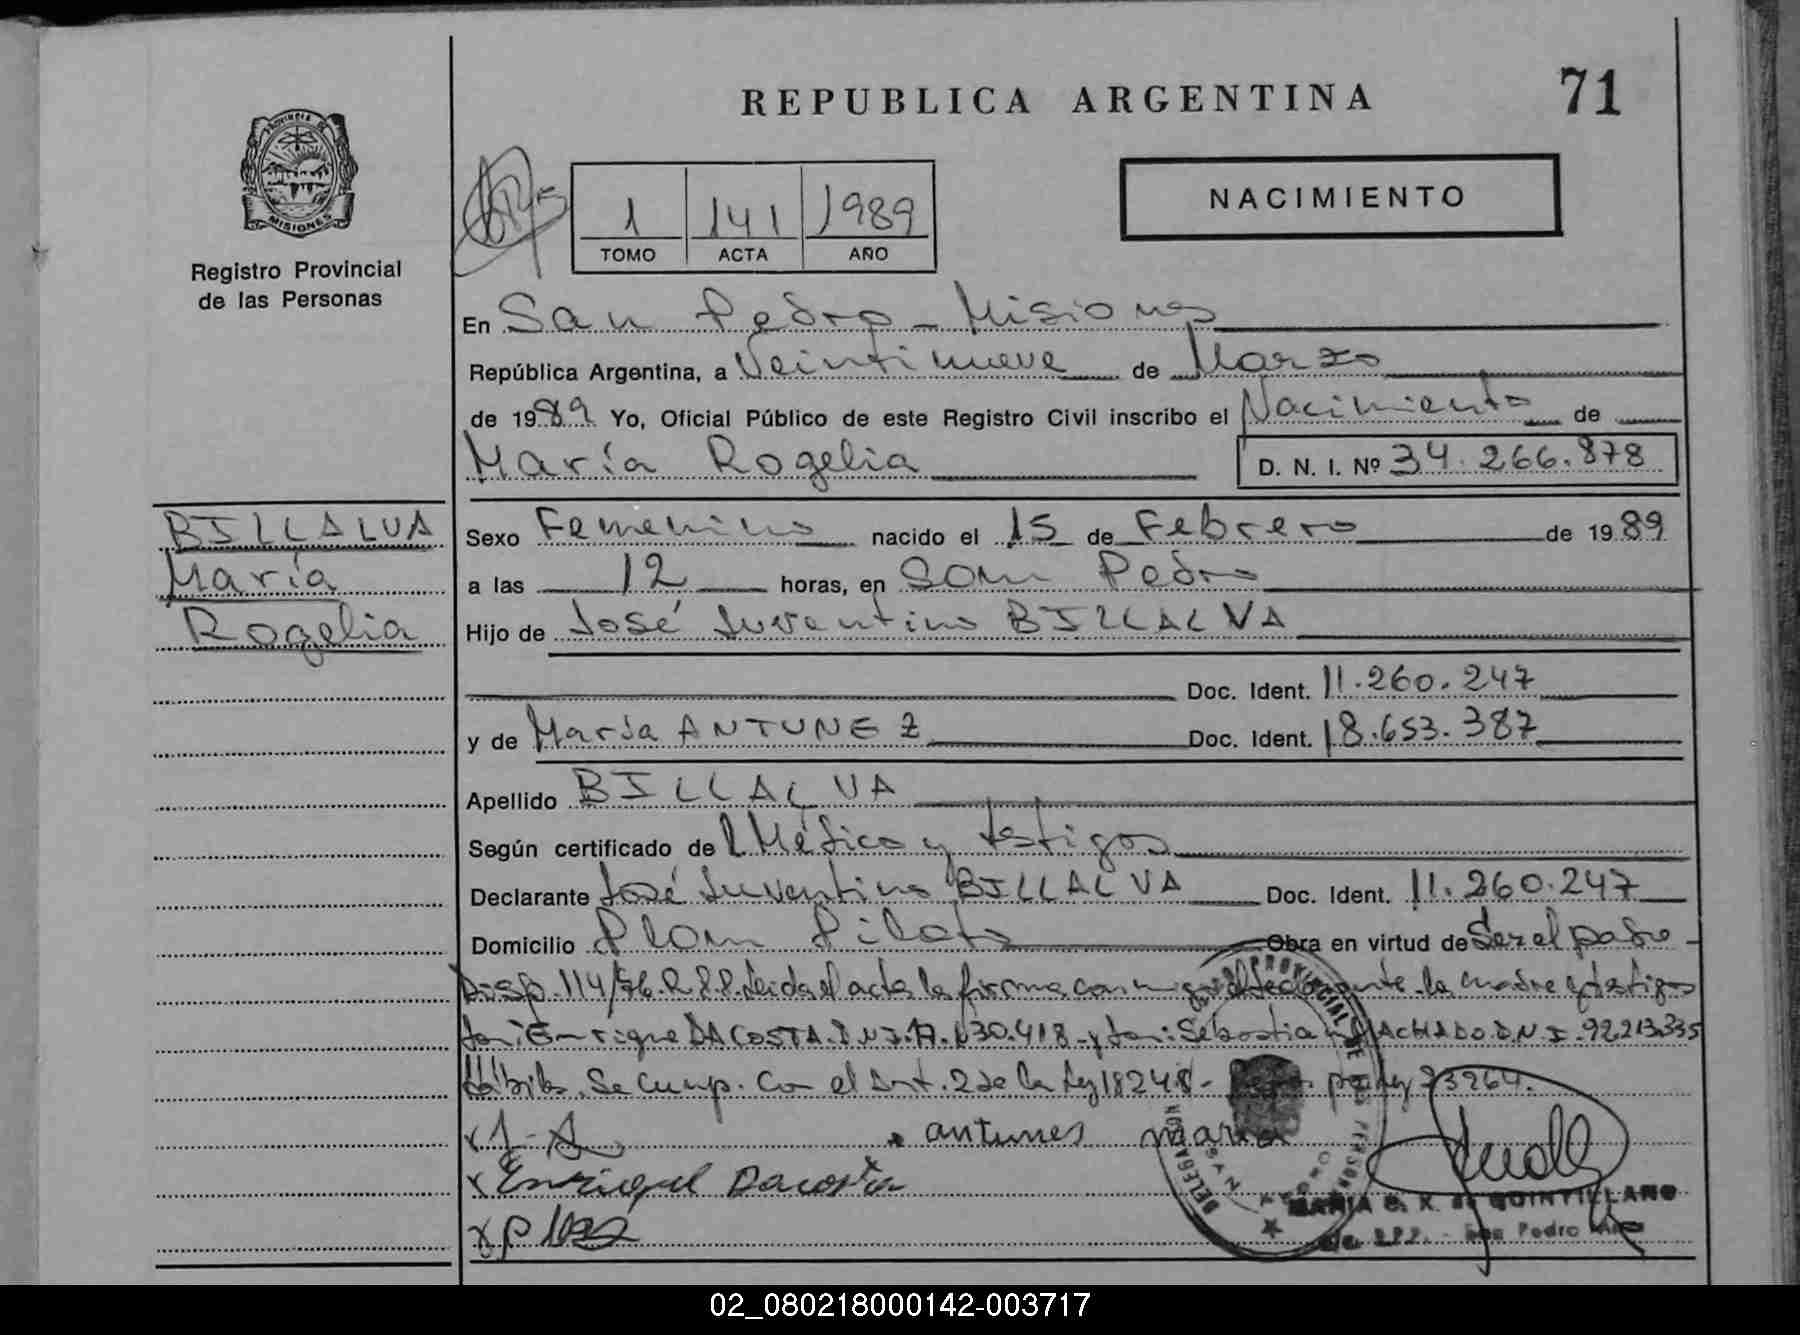 REPUBLICA ARGENTINA
71
PROVINCIA DE
MISIONES
Registro Provincial
de las Personas
1 141 1989
TOMO ACTA AÑO
NACIMIENTO
En San Pedro - Misiones
República Argentina, a Veintinueve de Marzo
de 1989 Yo, Oficial Público de este Registro Civil inscribo el Nacimiento de
María Rogelia D. N. I. Nº 34.266.878
BILLALVA
María
Rogelia
Sexo Femenino nacido el 15 de Febrero de 1989
a las 12 horas, en San Pedro
Hijo de José Juventino BILLALVA
Doc. Ident. 11.260.247
y de María ANTUNEZ Doc. Ident. 18.653.387
Apellido BILLALVA
Según certificado de Médico y testigos
Declarante José Juventino BILLALVA Doc. Ident. 11.260.247
Domicilio Plan Piloto Obra en virtud de Ser el padre
Disp. 114/76. R.P.P. Leida el acta la firma conmigo el declarante la madre testigos
Enrique DACOSTA. D.N.I. y Sebastian MACHADO. D.N.I. 92213335
Se cump. con el Art. 2 de la Ley 18248 - 23264.
antunes maria
Enriquel Dacosta
MARIA QUINTILLANO
San Pedro
02_080218000142-003717